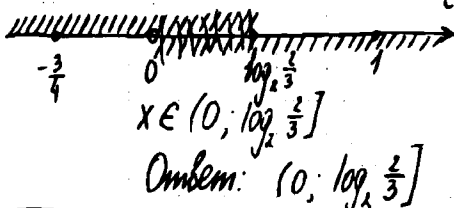 -3/4 0 log₂ 2/3 1
x ∈ (0; log₂ 2/3]
Ответ: (0; log₂ 2/3]